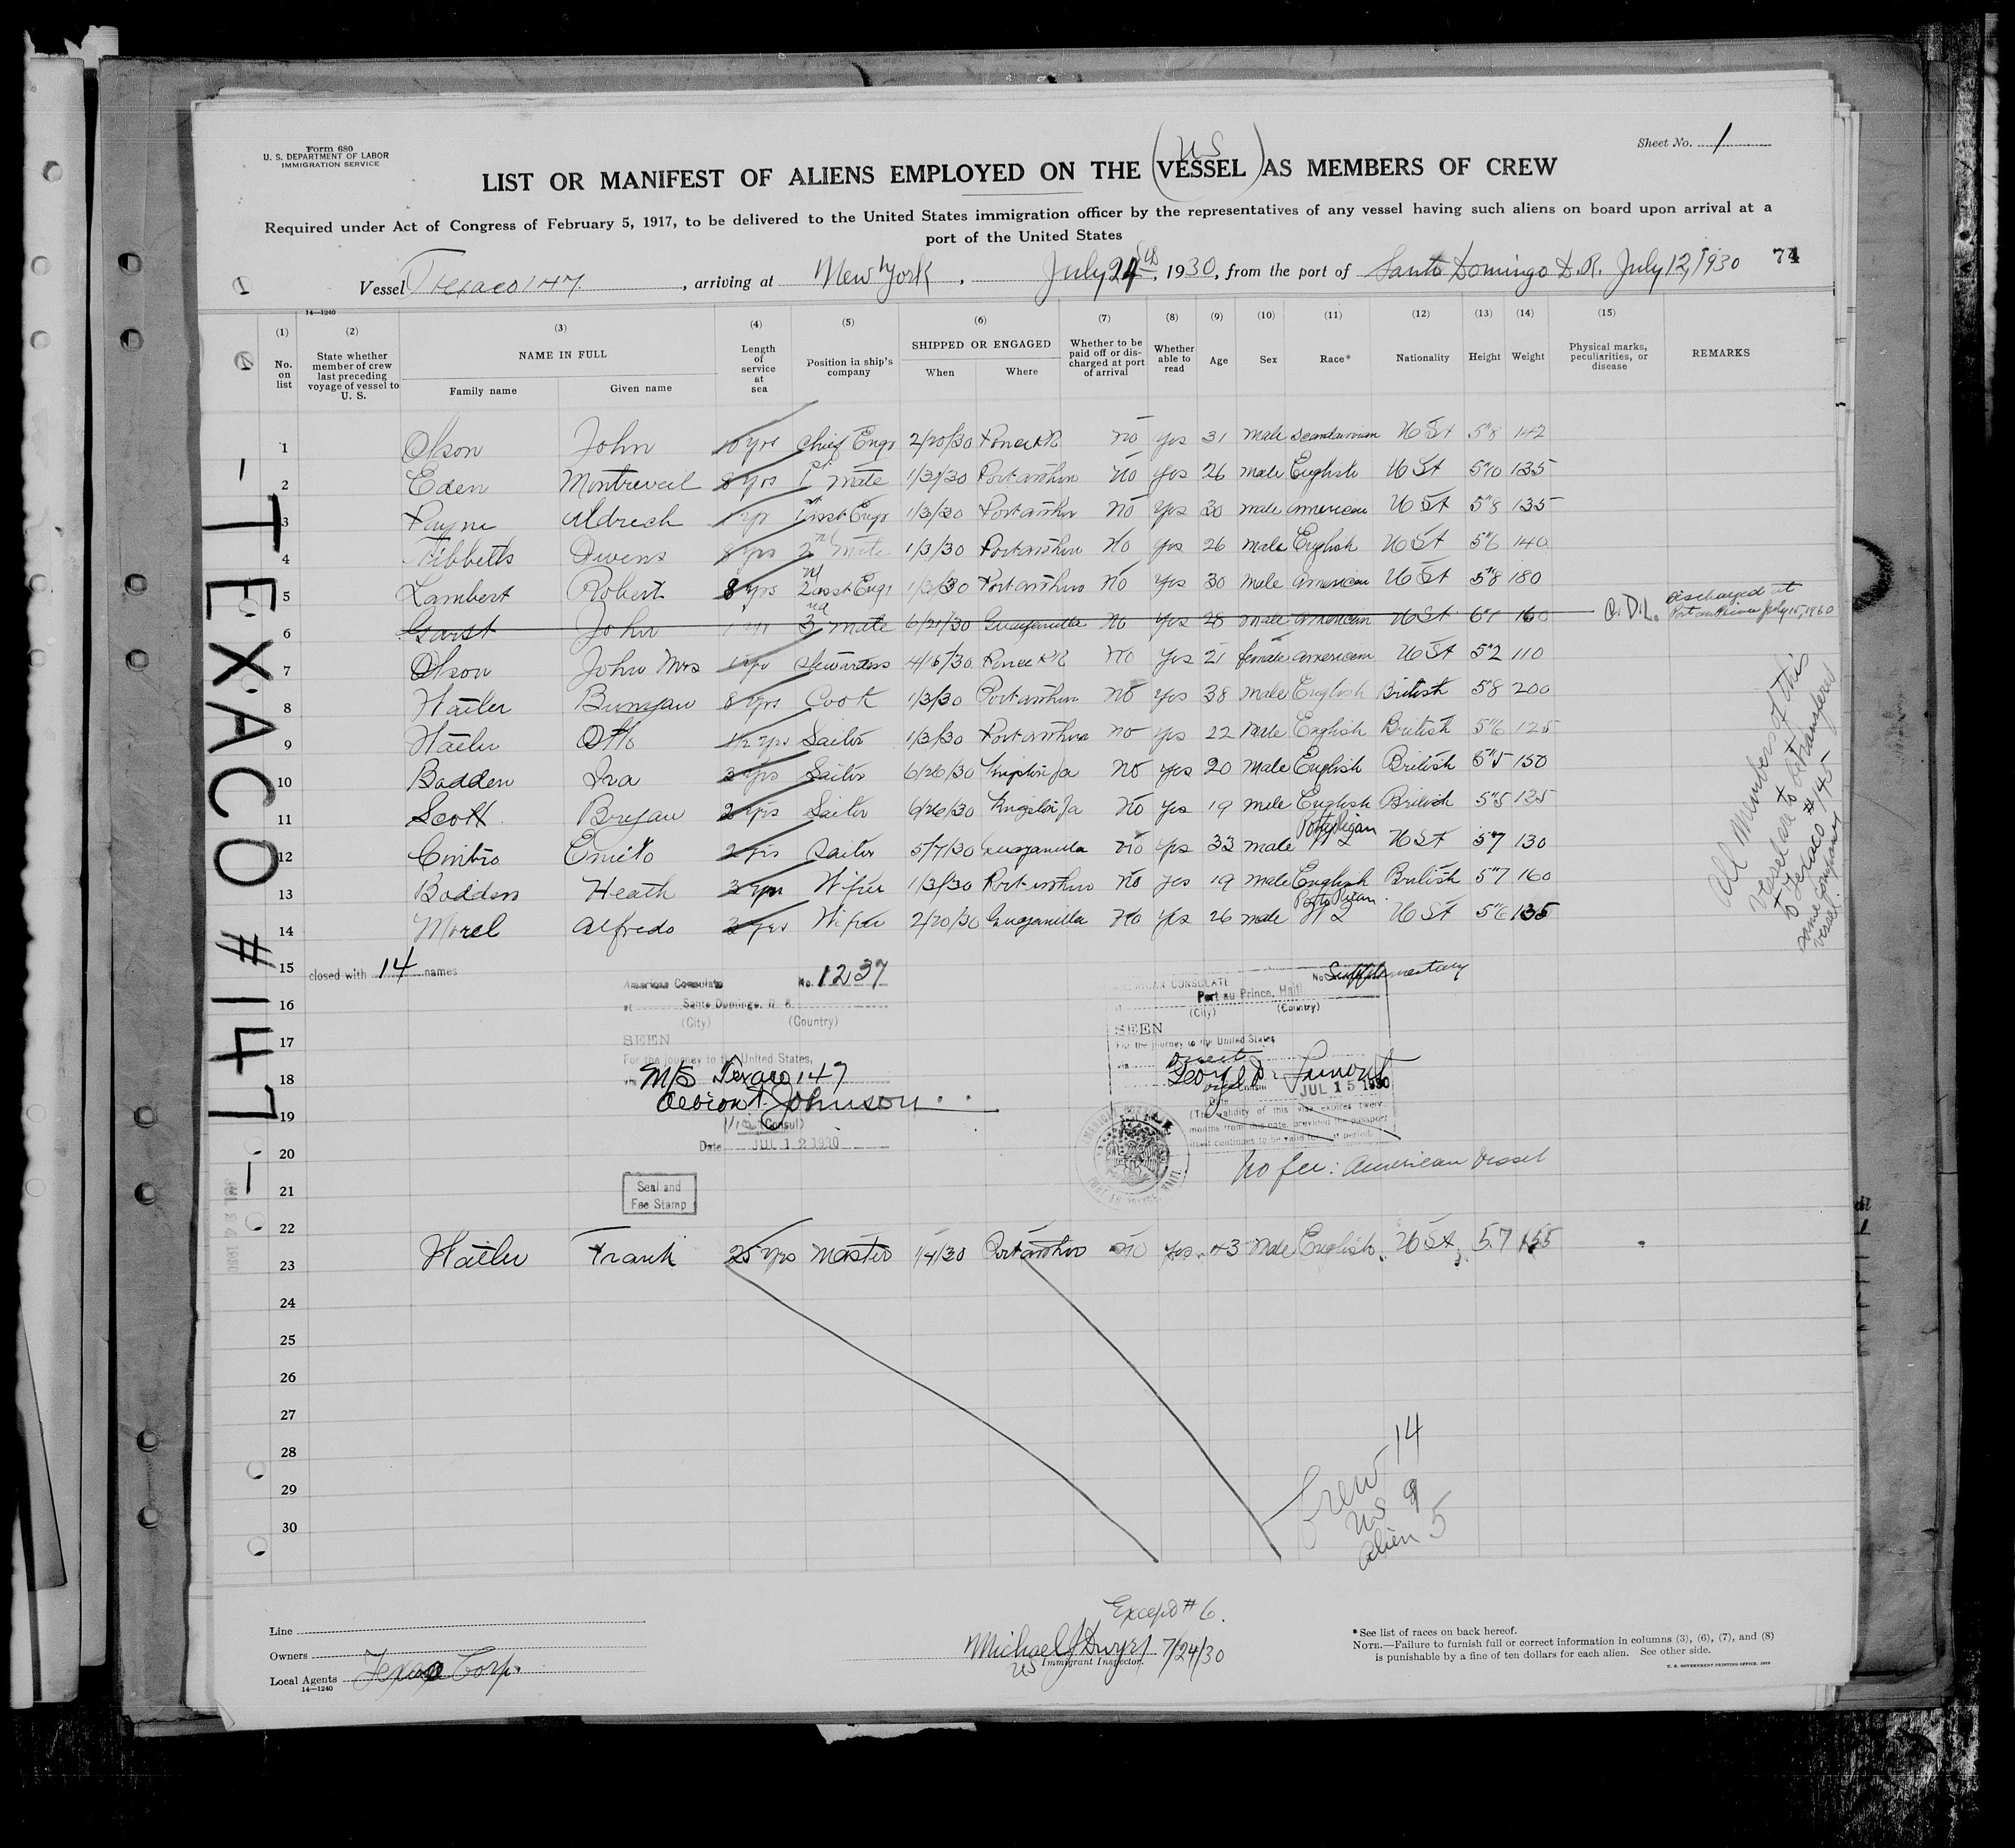 Form 680
U. S. DEPARTMENT OF LABOR
IMMIGRATION SERVICE
Sheet No. 1
US
LIST OR MANIFEST OF ALIENS EMPLOYED ON THE (VESSEL) AS MEMBERS OF CREW
Required under Act of Congress of February 5, 1917, to be delivered to the United States immigration officer by the representatives of any vessel having such aliens on board upon arrival at a
port of the United States
Vessel Texaco 147, arriving at New York, July 24th, 1930, from the port of Santo Domingo D.R. July 12, 1930 74
14—1240
(1) (2) (3) (4) (5) (6) (7) (8) (9) (10) (11) (12) (13) (14) (15)
No. on list
State whether member of crew last preceding voyage of vessel to U. S.
NAME IN FULL
Family name Given name
Length of service at sea
Position in ship's company
SHIPPED OR ENGAGED
When Where
Whether to be paid off or discharged at port of arrival
Whether able to read
Age Sex Race* Nationality Height Weight
Physical marks, peculiarities, or disease
REMARKS
1 Olson John 10 yrs Chief Engr 2/20/30 Ponce P.R. no yes 31 male Scandanvian U St 5"8 142
2 Eden Montreveil 8 yrs 1st mate 1/3/30 Port arthur no yes 26 male English U St 5"10 135
3 Payne Aldrich 1 yr 1st asst Engr 1/3/30 Port arthur no yes 30 male american U St 5"8 135
4 Tibbetts Owens 8 yrs 2nd mate 1/3/30 Port arthur no yes 26 male English U St 5"6 140
5 Lambert Robert 8 yrs 2nd asst Engr 1/3/30 Port arthur no yes 30 male american U St 5"8 180
6 Garst John 1 yr 3rd mate 6/21/30 Guayanilla no yes 28 male american U St 6"1 160 Discharged at Port au Prince July 15, 1930
7 Olson John Mrs 1 yr Stewardess 4/6/30 Ponce P.R. no yes 21 female american U St 5"2 110
8 Watler Bunyan 8 yrs Cook 1/3/30 Port arthur no yes 38 male English British 5"8 200
9 Watler Otto 1½ yrs Sailor 1/3/30 Port arthur no yes 22 male English British 5"6 125
10 Bodden Ira 3 yrs Sailor 6/26/30 Kingston Ja no yes 20 male English British 5"5 150
11 Scott Bryan 2 yrs Sailor 6/26/30 Kingston Ja no yes 19 male English British 5"5 135
12 Cintro 2 yrs Sailor 5/7/30 Guayanilla no yes 33 male Porto Rican W I U St 5"7 130
13 Bodden Heath 3 yrs Wiper 1/3/30 Port arthur no yes 19 male English British 5"7 160
14 Morel Alfredo 3 yrs Wiper 2/20/30 Guayanilla no yes 26 male Porto Rican W I U St 5"6 135
All Members of this
vessel are to be transferred
to Texaco #145
same company
vessel
15 closed with 14 names
American Consulate No. 1237
at Santo Domingo, D. R.
(City) (Country)
SEEN
For the journey to the United States,
via M/S Texaco 147
Albion Johnson
(Consul)
Date JUL 12 1930
Seal and
Fee Stamp
AMERICAN CONSULATE No Supplementary
at Port au Prince, Haiti
(City) (Country)
SEEN
For the journey to the United States
via Direct
JUL 15 1930
Date
(The validity of this visa expires twelve
months from this date, provided the passport
itself continues to be valid for that period.
No fee: American Vessel
16
17
18
19
20
21
22
23 Watler Frank 25 yrs Master 1/4/30 Port arthur no yes 43 male English U St 5.7 155
24
25
26
27
28
29
30
Crew 14
US 9
alien 5
— TEXACO #147 —
Except #6.
Line
Owners
Local Agents Texaco Corp.
14—1240
Michael J Dwyer 7/24/30
US Immigrant Inspector.
*See list of races on back hereof.
NOTE.—Failure to furnish full or correct information in columns (3), (6), (7), and (8)
is punishable by a fine of ten dollars for each alien. See other side.